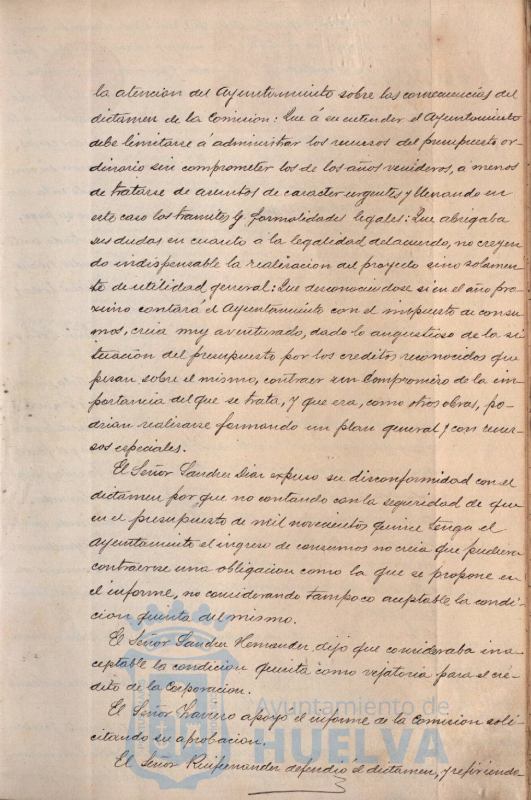 la atencion del Ayuntamiento sobre las consecuencias del
dictamen de la Comision: Que á su entender el Ayuntamiento
debe limitarse á administrar los recursos del presupuesto or-
dinario sin comprometer los de los años venideros, á menos
de tratarse de asuntos de caracter urgentes y llenando en
este caso los tramites y formalidades legales: Que abrigaba
sus dudas en cuanto á la legalidad del acuerdo, no creyen
do indispensable la realizacion del proyecto sino solamen
te de utilidad general: Que desconociendose si en el año pro
ximo contará el Ayuntamiento con el impuesto de consu
mos, creia muy aventurado, dado lo angustioso de la si
tuacion del presupuesto por los creditos reconocidos que
pesan sobre el mismo, contraer un compromiso de la im
portancia del que se trata, y que era, como otras obras, po-
drian realizarse formando un plan general y con recur
sos especiales.
El Señor Sanchez Diaz expuso su disconformidad con el
dictamen por que no contando con la seguridad de que
en el presupuesto de mil novecientos quince tenga el
Ayuntamiento el ingreso de consumos no creia que pudiera
contraerse una obligacion como la que se propone en
el informe, no considerando tampoco aceptable la condi
cion quinta del mismo.
El Señor Sanchez Hernandez, dijo que consideraba ina
ceptable la condicion quinta como vejatoria para el cré-
dito de la Corporacion.
El Señor Navero apoyó el informe de la Comision soli-
citando su aprobacion.
El Señor Ruifernandez defendió el dictamen, y refiriendo
Ayuntamiento de
HUELVA